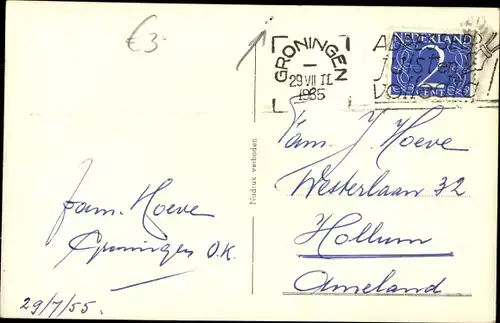 €3-
GRONINGEN
29 VII 11
1955
NEDERLAND
2
CENT
Nadruk verboden
Fam. J. Hoeve
Westerlaan 32
Hollum
Ameland
fam. Hoeve
Groningen O.K.
29/7/55.